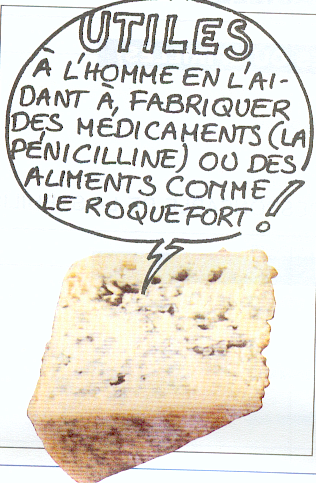 UTILES
À L'HOMME EN L'AI-
DANT À FABRIQUER
DES MÉDICAMENTS (LA
PÉNICILLINE) OU DES
ALIMENTS COMME
LE ROQUEFORT !